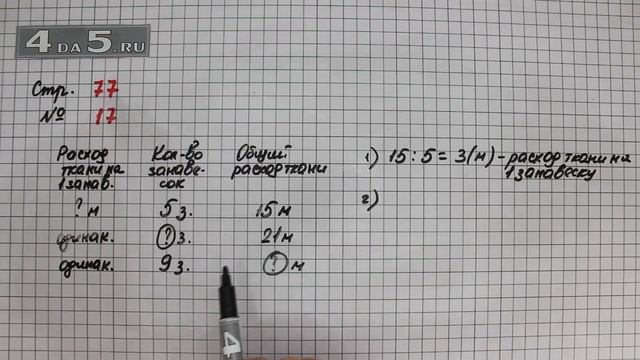 4 DA 5.RU
Стр. 77
№ 17
Расход ткани на 1 занав.
Кол-во занавесок
Общий расход ткани
? м 5 з. 15 м
одинак. ? з. 21 м
одинак. 9 з. ? м
1) 15 : 5 = 3 (м) - расход ткани на
1 занавеску
2)
4